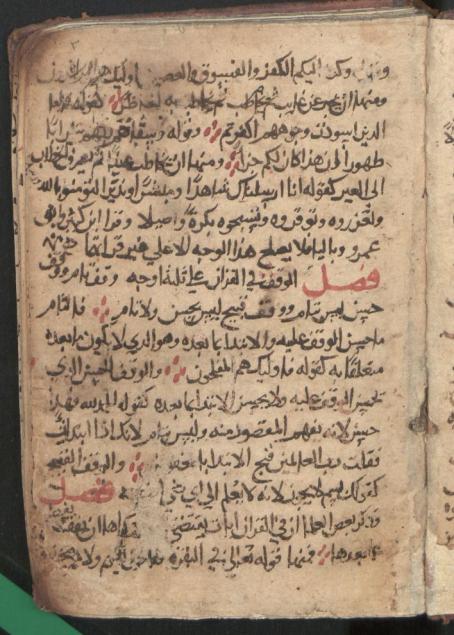 وكره اليكم الكفر والفسوق والعصيان اوليك هم
ومنها ان يخبر عن غايب ثم يخاطب كقوله فاما
الذين اسودت وجوههم اكفرتم وقوله وسقاهم ربهم شرابا
طهورا ان هذا كان لكم جزا ومنها ان يخاطب عينا ثم يصرف الخطاب
الى الغير كقوله انا ارسلناك شاهدا ومبشرا ونذيرا لتومنوا بالله
وتعزروه وتوقروه وتسبحوه بكرة واصيلا وقرا ابن كثير وابو
عمرو وباليا فلا يصلح هذا الوجه الا على قراتنا
فصل الوقف في القران على ثلثة اوجه وقف تام ووقف
حسن ليس بتام ووقف قبيح ليس بحسن ولا تام فالتام
ما حسن الوقف عليه والابتدا بما بعده وهو الذي لا يكون ما بعده
متعلقا به كقوله واوليك هم المفلحون والوقف الحسن الذي
يحسن الوقف عليه ولا يحسن الابتدا بما بعده كقوله الحمد لله فهذا
حسن لانه يفهم المقصود منه وليس بتام لانك اذا ابتدات
فقلت رب العالمين قبح الابتدا والوقف القبيح
كقولك بسم لا يجوز لانه لا يعلم الى اي شي فصل
وذكر بعض العلما ان في القران ايات يقتضي
ما بعدها فمنها قوله تعالى في البقرة